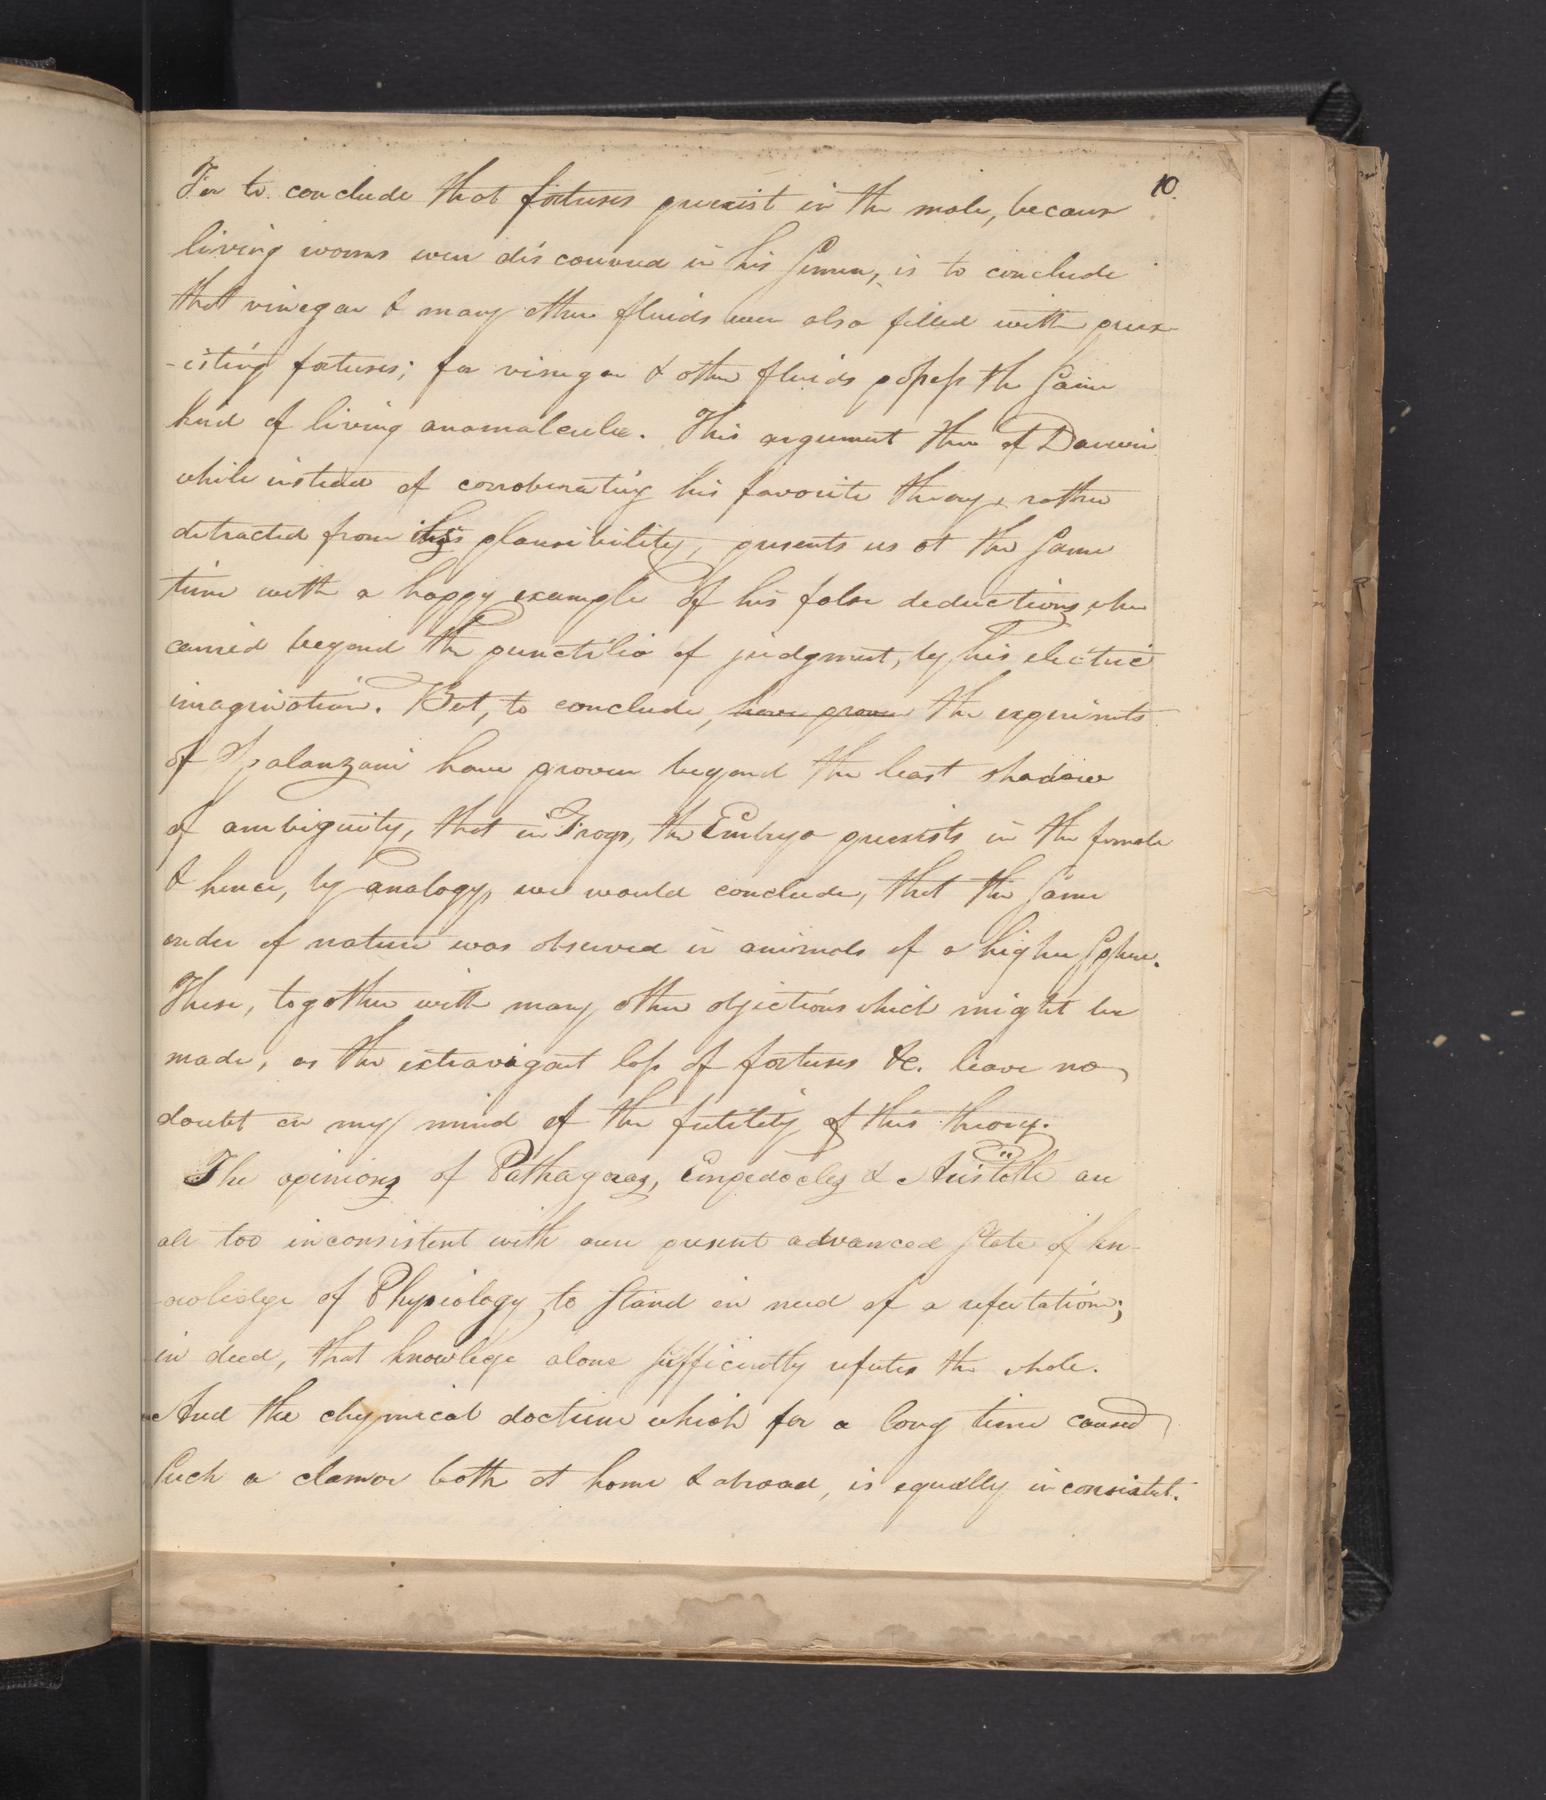 10.
For to conclude that foetuses preexist in the male, because
living worms were discovered in his semen, is to conclude
that vinegar & many other fluids were also filled with preex-
-isting foetuses; for vinegar & other fluids possess the same
kind of living anamalculae. This argument then of Darwin
while instead of corroborating his favorite theory, rather
detracted from its plausibility, presents us at the same
time with a happy example of his false deductions, when
carried beyond the punctilio of judgment, by his electric
imagination. But, to conclude, have proven the experiments
of Spalanzani have proven beyond the least shadow
of ambiguity, that in Frogs, the Embryo preexists in the female
& hence, by analogy, we would conclude, that the same
order of nature was observed in animals of a higher sphere.
These, together with many other objections which might be
made, as the extravagant loss of foetuses &c. leave no
doubt on my mind of the futility of this theory.
The opinions of Pathagoras, Empedocles & Aristotle are
all too inconsistent with our present advanced state of kn-
-owledge of Physiology, to stand in need of a refutation;
in deed, that knowlege alone sufficiently refutes the whole.
And the chymical doctrine which for a long time caused
such a clamor both at home & abroad, is equally inconsistent.